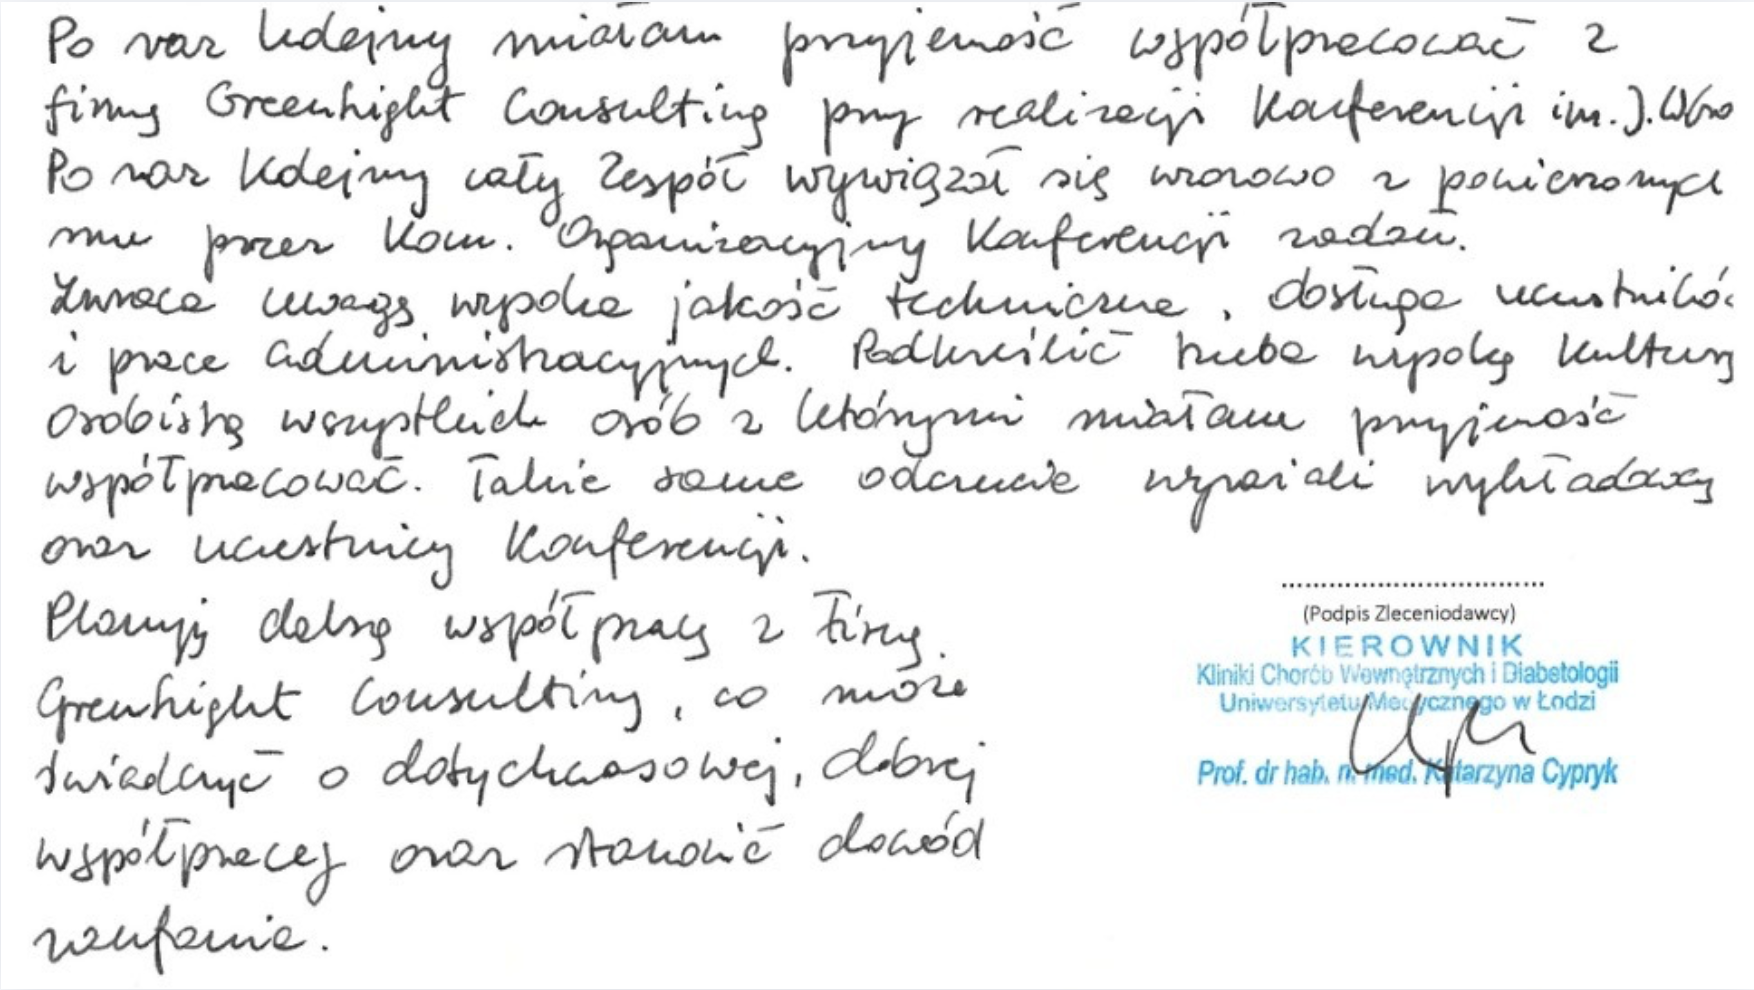 Po raz kolejny miałam przyjemność współpracować z
firmą Greenlight Consulting przy realizacji Konferencji im. J.
Po raz kolejny cały Zespół wywiązał się wzorowo z powierzonych
mu przez Kom. Organizacyjny Konferencji zadań.
Zwraca uwagę wysoka jakość techniczna, obsługa
i prace administracyjnych. Podkreślić trzeba wysoką kulturę
osobistą wszystkich osób z którymi miałam przyjemność
współpracować. Takie same odczucie wyrażali wykładowcy
oraz uczestnicy Konferencji.
Planuję dalszą współpracę z Firmą
Greenlight Consulting, co może
świadczyć o dotychczasowej, dobrej
współpracy oraz stanowić dowód
zaufania.
(Podpis Zleceniodawcy)
KIEROWNIK
Kliniki Chorób Wewnętrznych i Diabetologii
Uniwersytetu Medycznego w Łodzi
Prof. dr hab. n. med. Katarzyna Cypryk